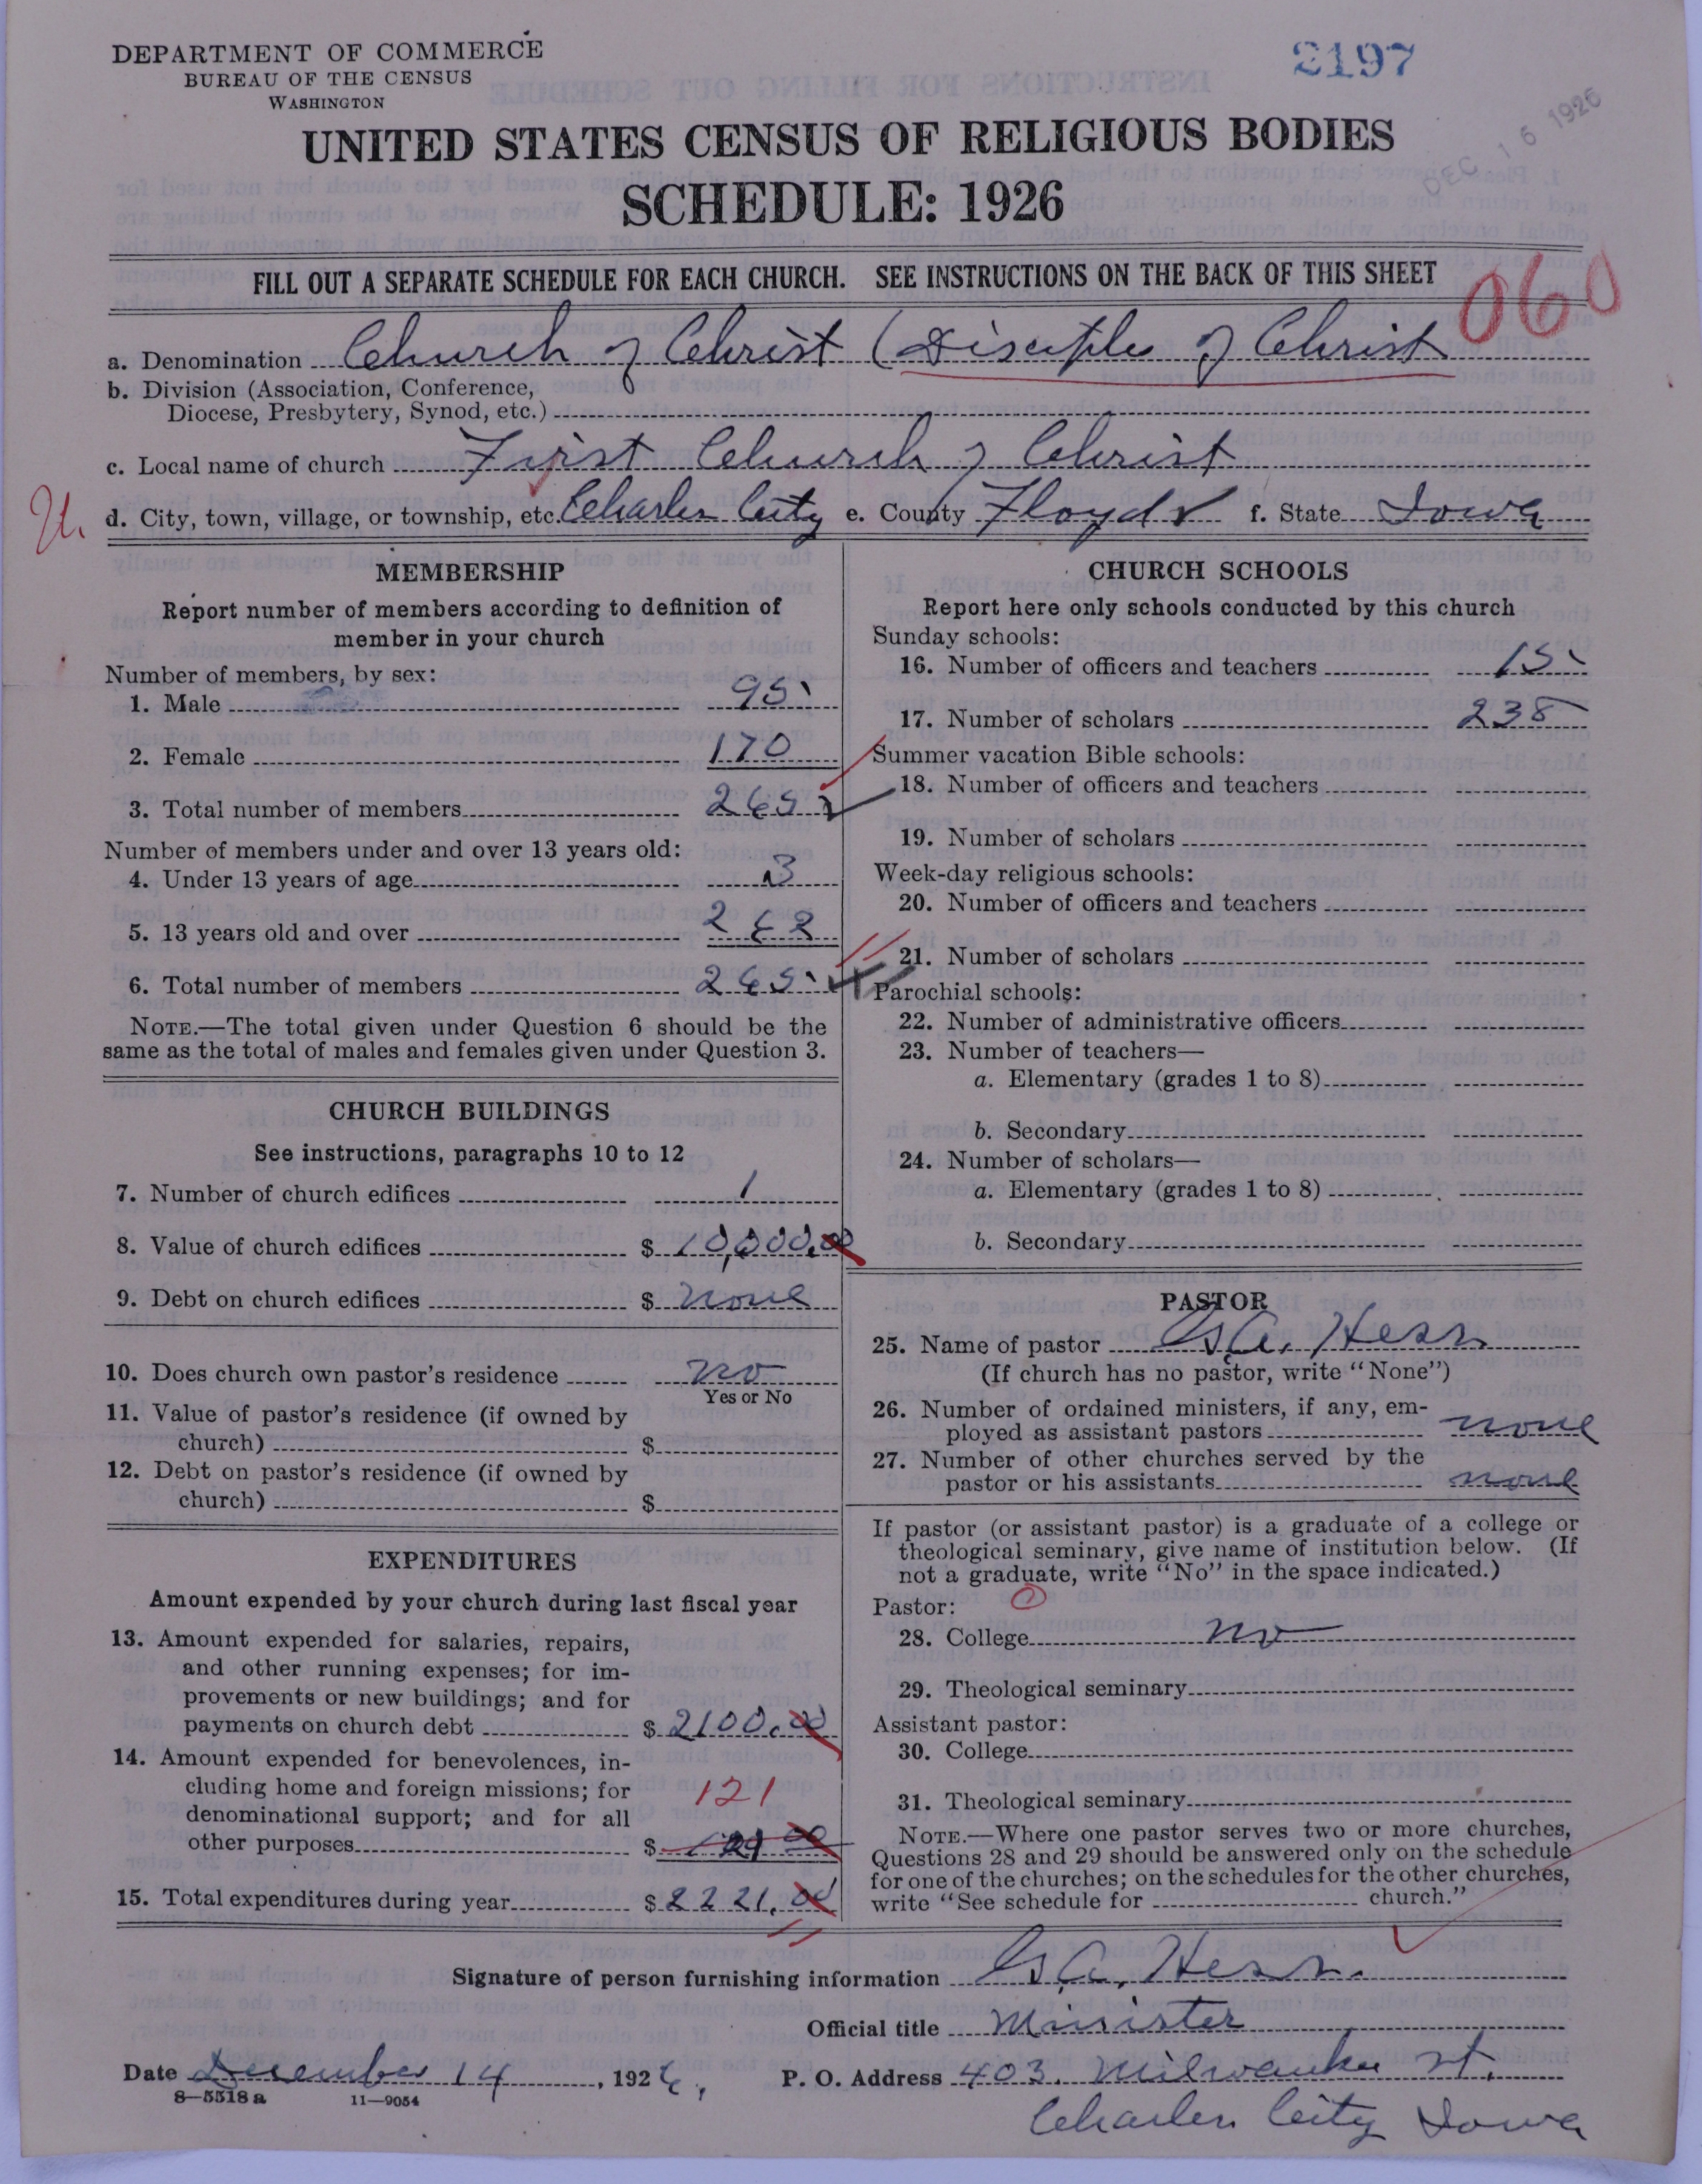 DEPARTMENT OF COMMERCE
BUREAU OF THE CENSUS
WASHINGTON
2197
DEC 16 1926
UNITED STATES CENSUS OF RELIGIOUS BODIES
SCHEDULE: 1926
FILL OUT A SEPARATE SCHEDULE FOR EACH CHURCH. SEE INSTRUCTIONS ON THE BACK OF THIS SHEET
060
a. Denomination Church of Christ (Disciples of Christ
b. Division (Association, Conference,
Diocese, Presbytery, Synod, etc.)
c. Local name of church First Church of Christ
d. City, town, village, or township, etc. Charles City e. County Floyd f. State Iowa
MEMBERSHIP
Report number of members according to definition of
member in your church
Number of members, by sex:
1. Male 95
2. Female 170
3. Total number of members 265
Number of members under and over 13 years old:
4. Under 13 years of age 3
5. 13 years old and over 262
6. Total number of members 265
NOTE.—The total given under Question 6 should be the
same as the total of males and females given under Question 3.
CHURCH BUILDINGS
See instructions, paragraphs 10 to 12
7. Number of church edifices 1
8. Value of church edifices $ 10,000.00
9. Debt on church edifices $ none
10. Does church own pastor's residence no
Yes or No
11. Value of pastor's residence (if owned by
church) $
12. Debt on pastor's residence (if owned by
church) $
EXPENDITURES
Amount expended by your church during last fiscal year
13. Amount expended for salaries, repairs,
and other running expenses; for im-
provements or new buildings; and for
payments on church debt $ 2100.00
14. Amount expended for benevolences, in-
cluding home and foreign missions; for
121
denominational support; and for all
other purposes $
15. Total expenditures during year $ 2221.00
CHURCH SCHOOLS
Report here only schools conducted by this church
Sunday schools:
16. Number of officers and teachers 15
17. Number of scholars 238
Summer vacation Bible schools:
18. Number of officers and teachers
19. Number of scholars
Week-day religious schools:
20. Number of officers and teachers
21. Number of scholars
Parochial schools:
22. Number of administrative officers
23. Number of teachers—
a. Elementary (grades 1 to 8)
b. Secondary
24. Number of scholars—
a. Elementary (grades 1 to 8)
b. Secondary
PASTOR
25. Name of pastor Hess
(If church has no pastor, write "None")
26. Number of ordained ministers, if any, em-
ployed as assistant pastors none
27. Number of other churches served by the
pastor or his assistants none
If pastor (or assistant pastor) is a graduate of a college or
theological seminary, give name of institution below. (If
not a graduate, write "No" in the space indicated.)
Pastor: 0
28. College no
29. Theological seminary
Assistant pastor:
30. College
31. Theological seminary
NOTE.—Where one pastor serves two or more churches,
Questions 28 and 29 should be answered only on the schedule
for one of the churches; on the schedules for the other churches,
write "See schedule for church."
Signature of person furnishing information Hess.
Official title Minister
Date December 14, 1926. P. O. Address 403. Milwaukee st.
8—5518a 11—9054
Charles City Iowa